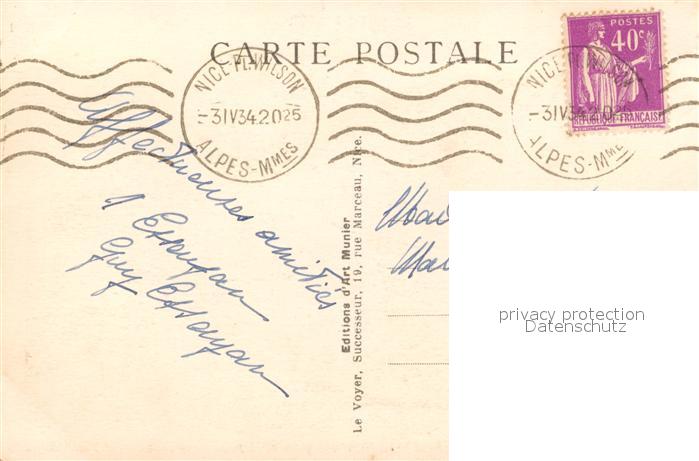 CARTE POSTALE
NICE PL. WILSON
-3IV34.2025
ALPES-MMES
POSTES
40c
RÉPUBLIQUE FRANÇAISE
NICE PL. WILSON
-3IV34.2025
ALPES-MMES
Affectueuses amitiés
Guy
Editions d'Art Munier
Le Voyer, Successeur, 19, rue Marceau, Nice.
privacy protection
Datenschutz